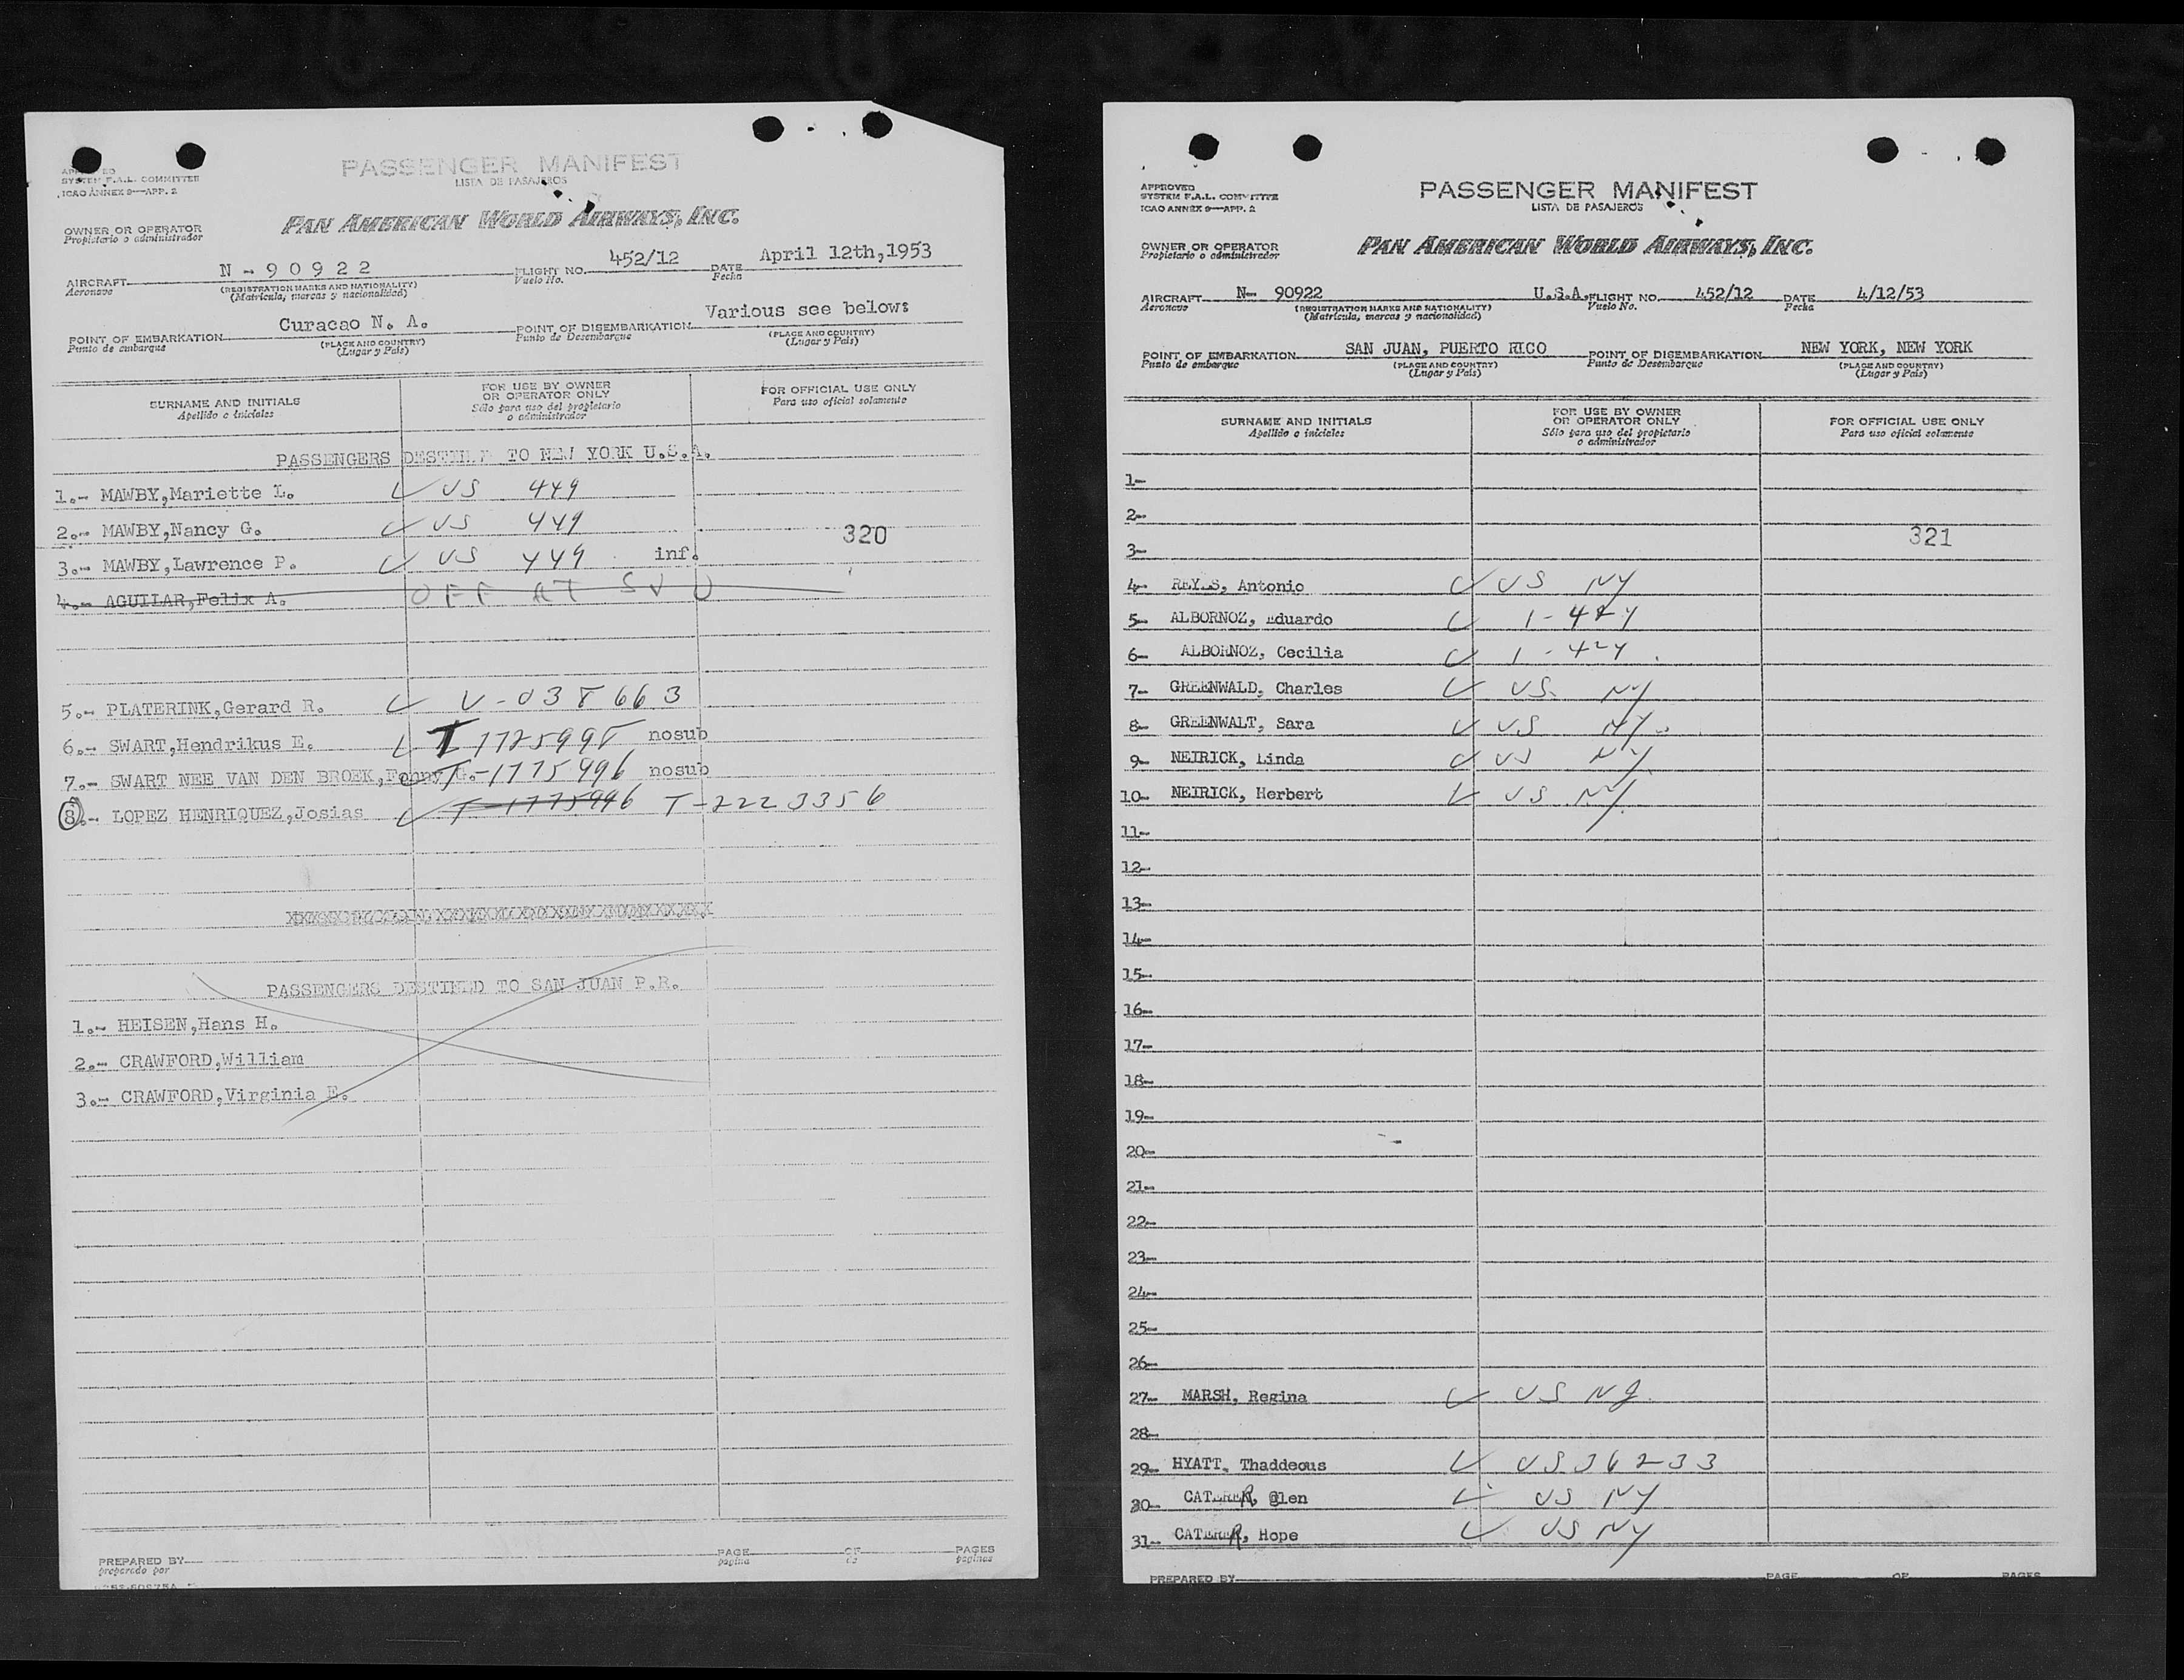 PASSENGER MANIFEST
LISTA DE PASAJEROS
SYSTEM F.A.L. COMMITTEE
ICAO ANNEX 9—APP. 2
OWNER OR OPERATOR
Propietario o administrador
PAN AMERICAN WORLD AIRWAYS, INC.
AIRCRAFT N - 9 0 9 2 2 FLIGHT NO. 452/12 DATE April 12th,1953
Aeronave (REGISTRATION MARKS AND NATIONALITY) Vuelo No. Fecha
(Matrícula, marcas y nacionalidad)
POINT OF EMBARKATION Curacao N. A. POINT OF DISEMBARKATION Various see below:
Punto de embarque (PLACE AND COUNTRY) Punto de Desembarque (PLACE AND COUNTRY)
(Lugar y País) (Lugar y País)
SURNAME AND INITIALS FOR USE BY OWNER OR OPERATOR ONLY FOR OFFICIAL USE ONLY
Apellido e iniciales Sólo para uso del propietario o administrador Para uso oficial solamente
PASSENGERS DESTINED TO NEW YORK U.S.A.
1.- MAWBY,Mariette L. US 449
2.- MAWBY,Nancy G. US 449 320
3.- MAWBY,Lawrence P. US 449 inf.
4.- AGUILAR,Felix A. OFF AT SJU
5.- PLATERINK,Gerard R. V-038663
6.- SWART,Hendrikus E. T 1775995 nosub
7.- SWART NEE VAN DEN BROEK,Fenny G. T-1775996 nosub
8.- LOPEZ HENRIQUEZ,Josias T-1775996 T-2223356
PASSENGERS DESTINED TO SAN JUAN P.R.
1.- HEISEN,Hans H.
2.- CRAWFORD,William
3.- CRAWFORD,Virginia E.
PREPARED BY PAGE OF PAGES
preparado por página de páginas
APPROVED
SYSTEM F.A.L. COMMITTEE
ICAO ANNEX 9—APP. 2
PASSENGER MANIFEST
LISTA DE PASAJEROS
OWNER OR OPERATOR
Propietario o administrador
PAN AMERICAN WORLD AIRWAYS, INC.
AIRCRAFT N- 90922 U.S.A. FLIGHT NO. 452/12 DATE 4/12/53
Aeronave (REGISTRATION MARKS AND NATIONALITY) Vuelo No. Fecha
(Matrícula, marcas y nacionalidad)
POINT OF EMBARKATION SAN JUAN, PUERTO RICO POINT OF DISEMBARKATION NEW YORK, NEW YORK
Punto de embarque (PLACE AND COUNTRY) Punto de Desembarque (PLACE AND COUNTRY)
(Lugar y País) (Lugar y País)
SURNAME AND INITIALS FOR USE BY OWNER OR OPERATOR ONLY FOR OFFICIAL USE ONLY
Apellido e iniciales Sólo para uso del propietario o administrador Para uso oficial solamente
1-
2-
3- 321
4- REYES, Antonio US NY
5- ALBORNOZ, Eduardo 1-424
6- ALBORNOZ, Cecilia 1-424
7- GREENWALD, Charles US NY
8- GREENWALT, Sara US NY
9- NEIRICK, Linda US NY
10- NEIRICK, Herbert US NY
11-
12-
13-
14-
15-
16-
17-
18-
19-
20-
21-
22-
23-
24-
25-
26-
27- MARSH, Regina US NY
28-
29- HYATT, Thaddeous US 36233
30- CATERER, Glen US NY
31- CATERER, Hope US NY
PREPARED BY PAGE OF PAGES